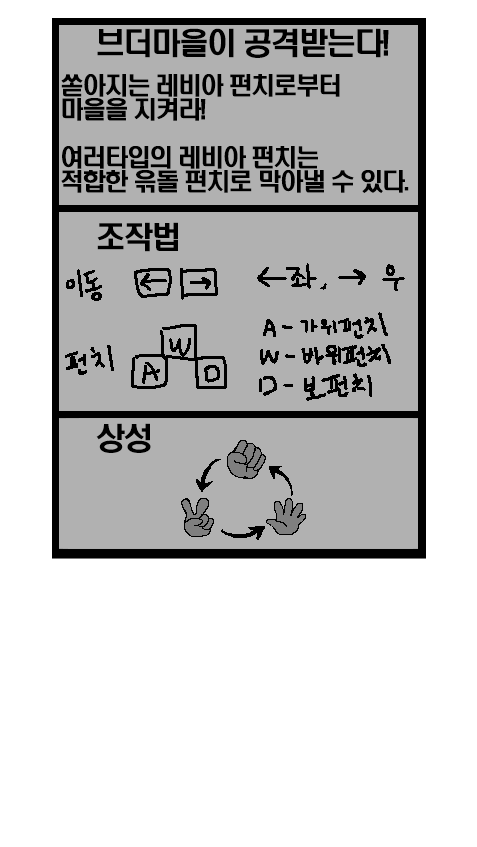 브더마을이 공격받는다!
쏟아지는 레비아 펀치로부터
마을을 지켜라!
여러타입의 레비아 펀치는
적합한 윾돌 펀치로 막아낼 수 있다.
조작법
이동 ← → ←좌, → 우
펀치 W A D
A - 가위펀치
W - 바위펀치
D - 보펀치
상성